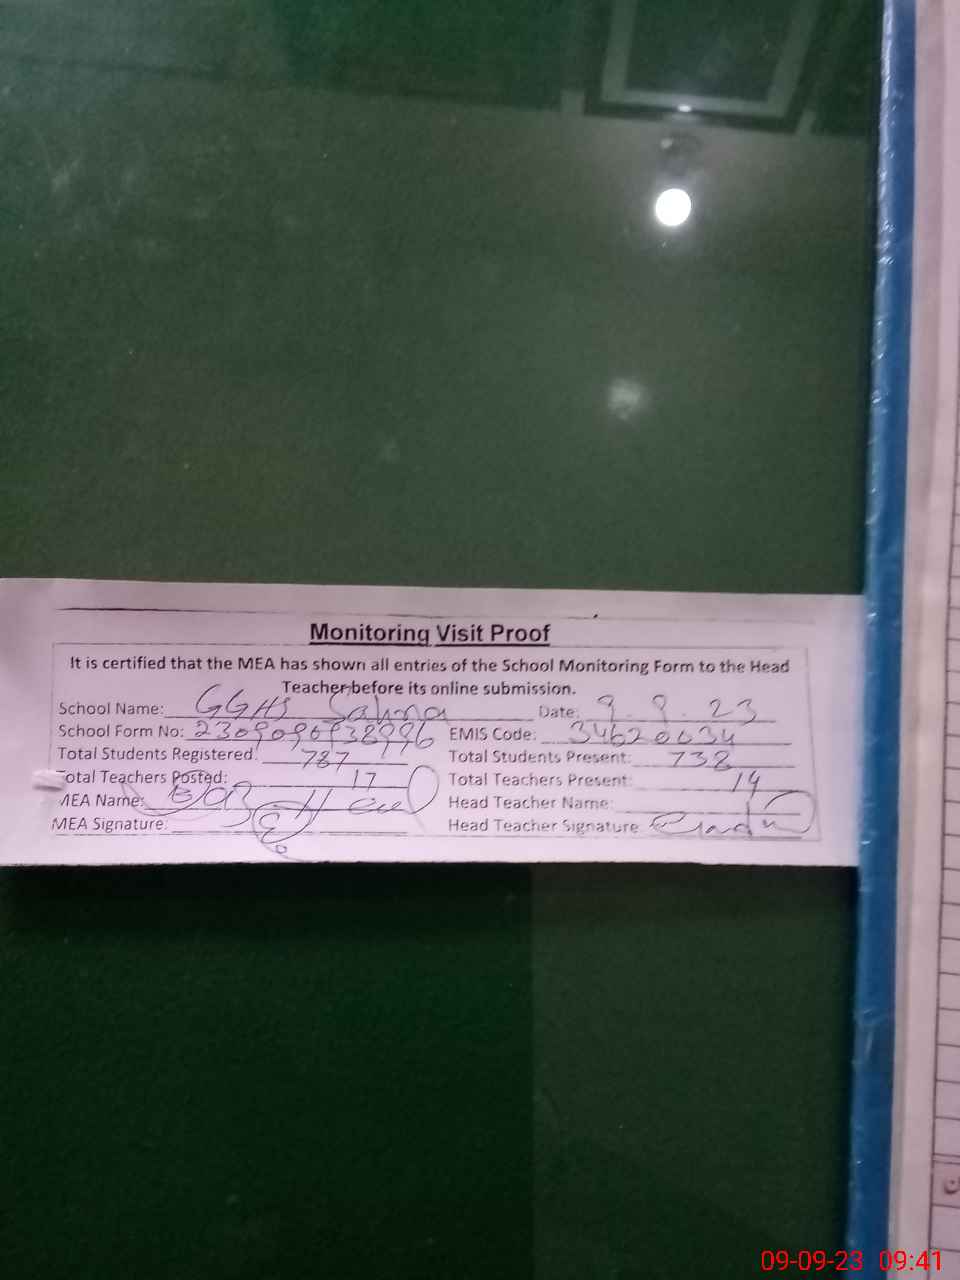 Monitoring Visit Proof
It is certified that the MEA has shown all entries of the School Monitoring Form to the Head
Teacher before its online submission.
School Name: GGHS Sahna Date: 9.9.23
School Form No: EMIS Code: 34620034
Total Students Registered: 787 Total Students Present: 738
Total Teachers Posted: 17 Total Teachers Present: 14
MEA Name: Head Teacher Name:
MEA Signature: Head Teacher Signature
09-09-23 09:41